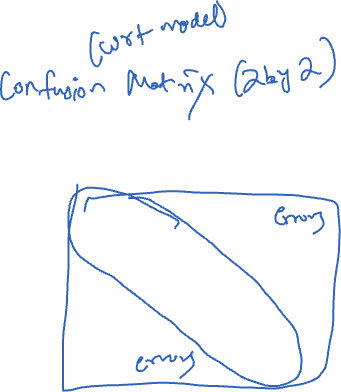 (wrt model)
Confusion Matrix (2by2)
errors
errors